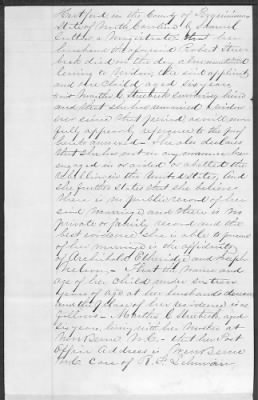 Hertford in the County of Perquimans
State of North Carolina by Samuel
a Magistrate that her
husband the aforesaid Robert
died on the day above mentioned
leaving to him surviving the said applicant
and one child aged six years
and that she has remained a widow
ever since that period as will more
fully appear by reference to the proof
hereto annexed. She also declares
that she has not in any manner been
engaged in or aided or abetted the
rebellion in the United States, and
she further states that she believes
there is no public record of her
said marriage and there is no
private or family record and the
best evidence she is able to procure
of her marriage is the affidavits
of Archibald Etheridge and Joseph
Nelson. That the name and
age of her child under sixteen
years of age at her husbands decease
and the place of her residence is as
follows. Martha C aged
six years, living with her Mother at
New Berne N.C. That her Post
Office address is New Berne
N.C. care of R. F. Lehman